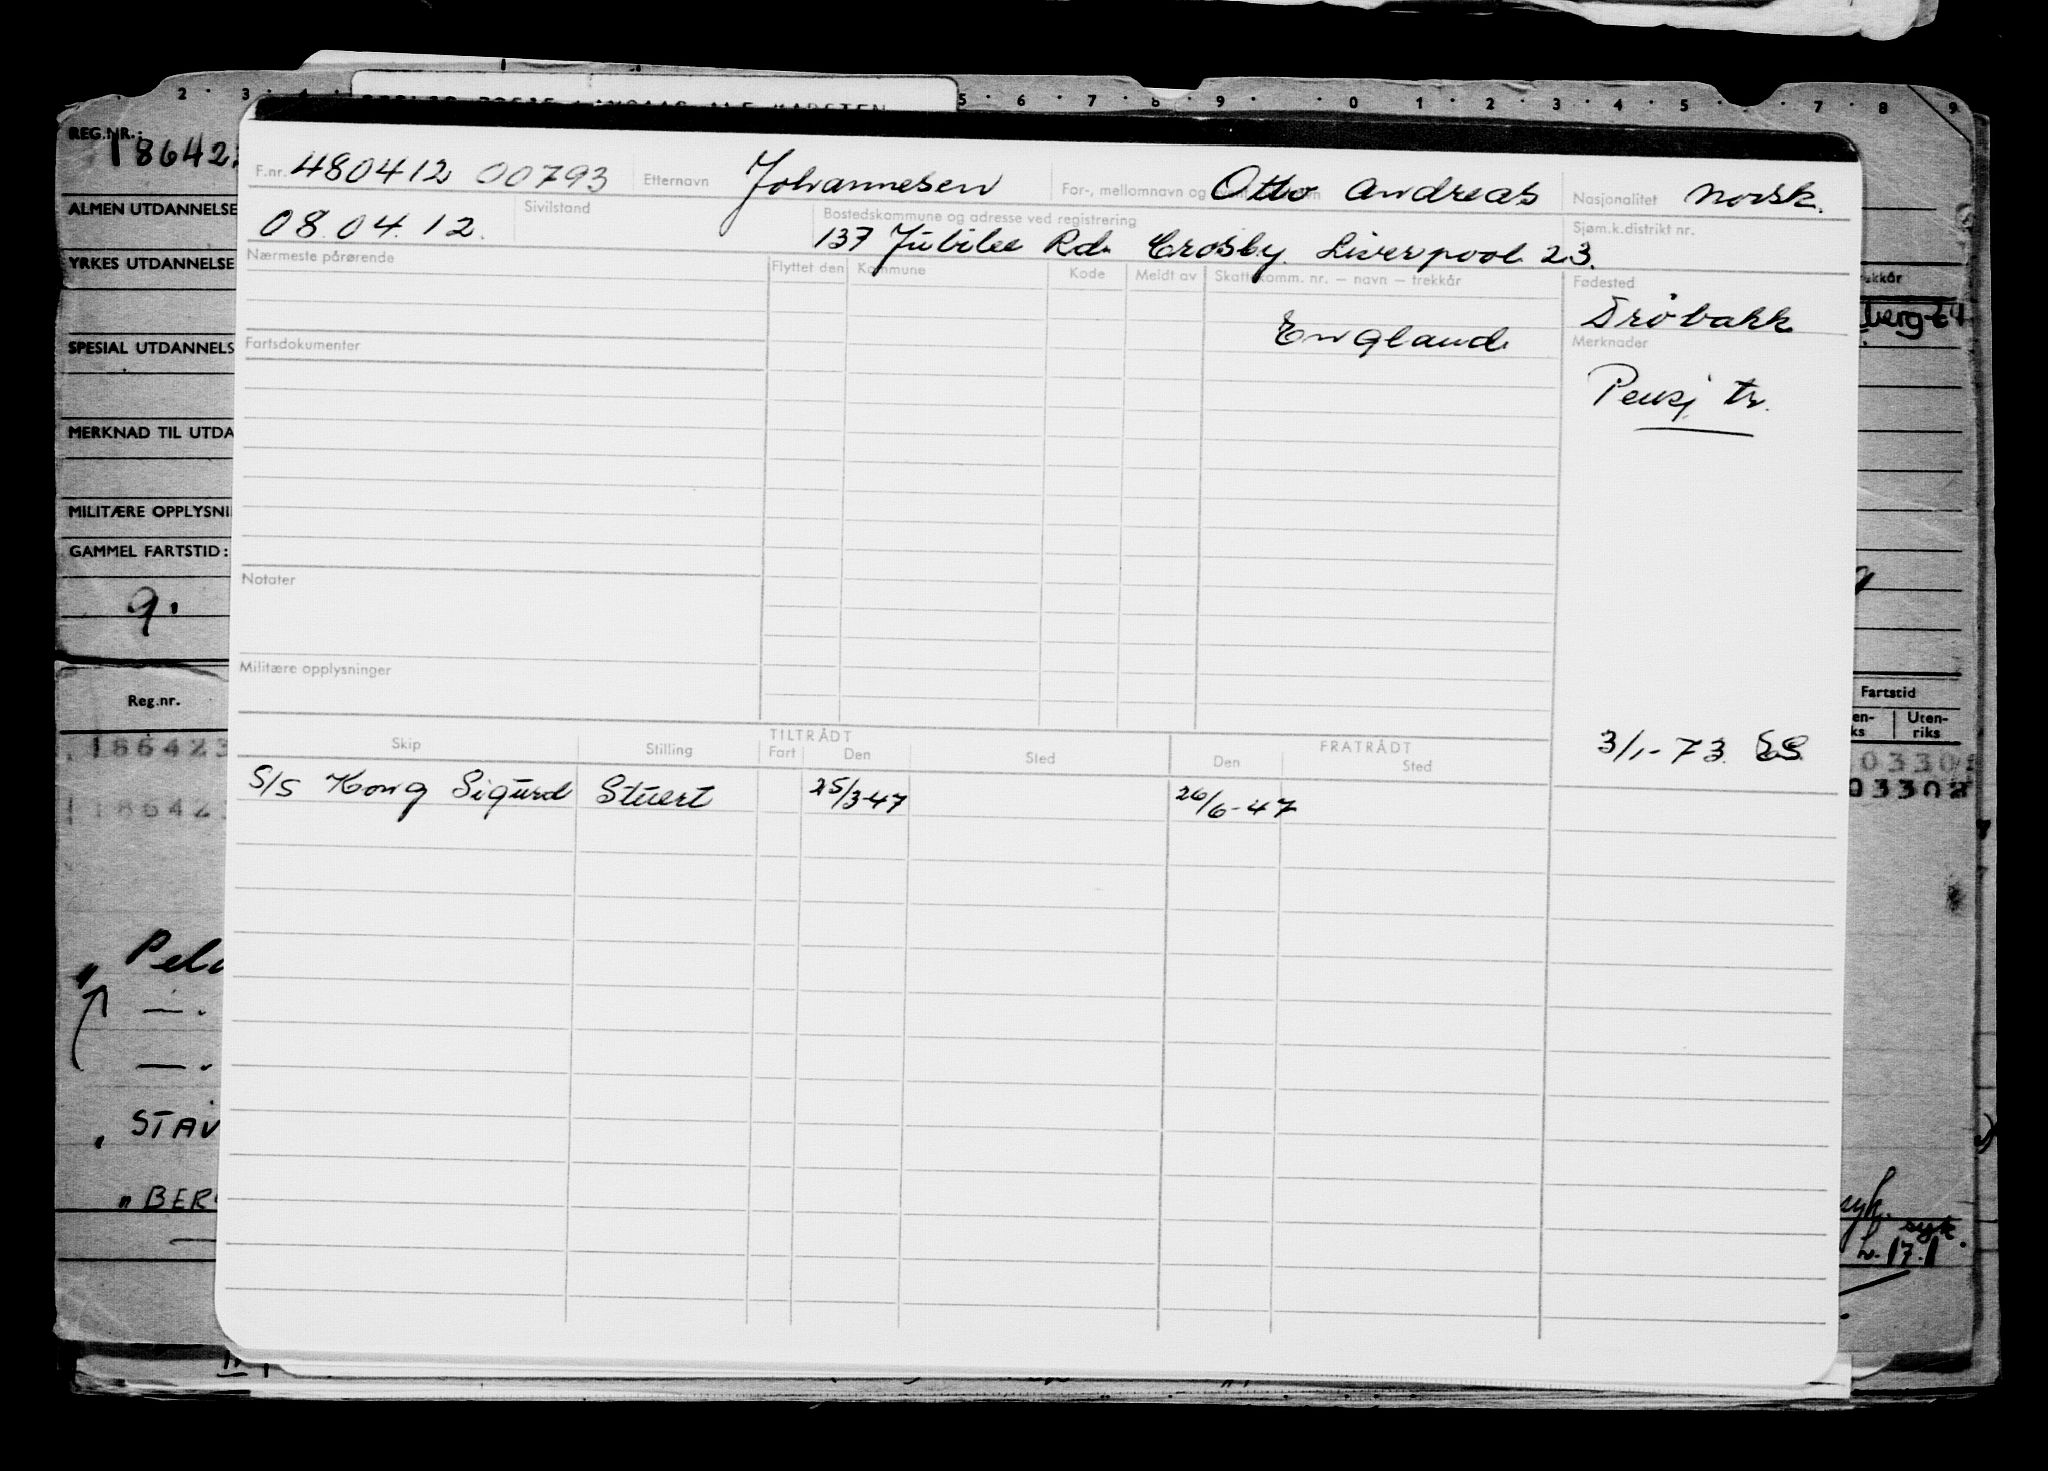 2 3 4 5 6 7 8 9 0 1 2 3 4 5 7 8 9
ALF KARSTEN
REG.NR.:
18642
ALMEN UTDANNELSE
YRKES UTDANNELSE
SPESIAL UTDANNELS
MERKNAD TIL UTDA
MILITÆRE OPPLYSNI
GAMMEL FARTSTID:
9.
Reg.nr.
186423
186423
" Pel
— .
— .
STAV
" BER
F.nr. 480412 00793 Etternavn Johannesen For-, mellomnavn og Otto Andreas Nasjonalitet Norsk.
08.04.12. Sivilstand Bostedskommune og adresse ved registrering Sjøm.k.distrikt nr.
137 Jubilee Rd. Crosby. Liverpool 23.
Nærmeste pårørende Flyttet den Kommune Kode Meldt av Skattekomm. nr. – navn – trekkår Fødested
England Drøbakk
Fartsdokumenter Merknader
Pensj tr.
Notater
Militære opplysninger
TILTRÅDT FRATRÅDT
Skip Stilling Fart Den Sted Den Sted
3/1-73 ES.
S/S Kong Sigurd Stuert 25/3-47 26/6-47
kkår
berg
Fartstid
en-
ks
Uten-
riks
03302
03302
syk.
syk.
17.1